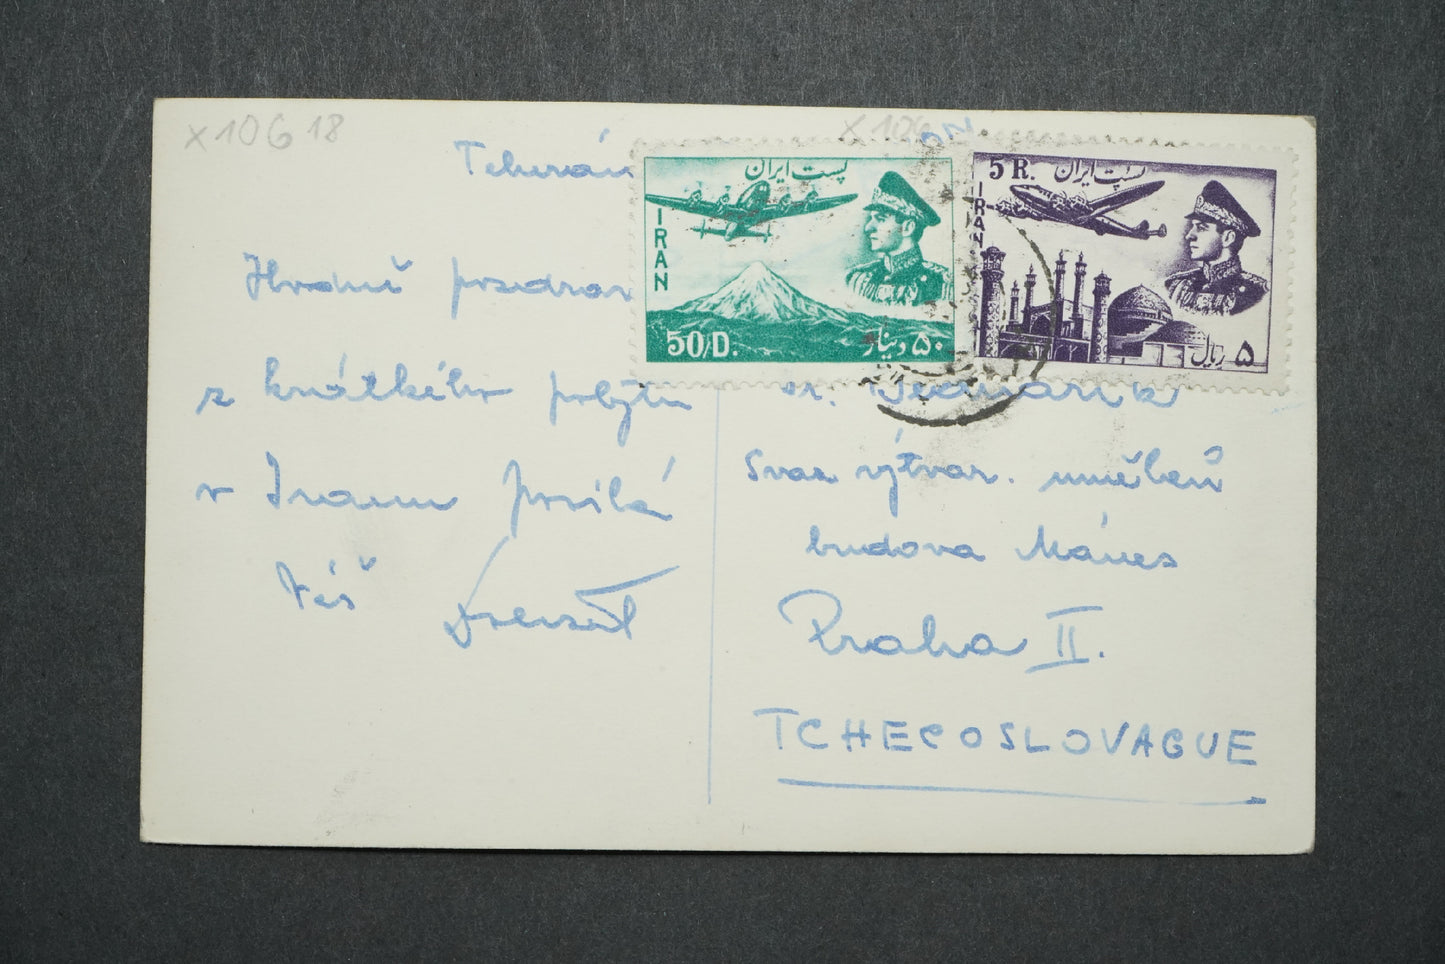 x 10618
x 106
Teherán
Hodně pozdrav
z krátkého pobytu
v Iranu posílá
Váš
پست ایران
IRAN
50/D.
۵۰ دینار
5 R.
پست ایران
IRAN
۵ ریال
Svaz výtvar. umělců
budova Mánes
Praha II.
TCHECOSLOVAGUE